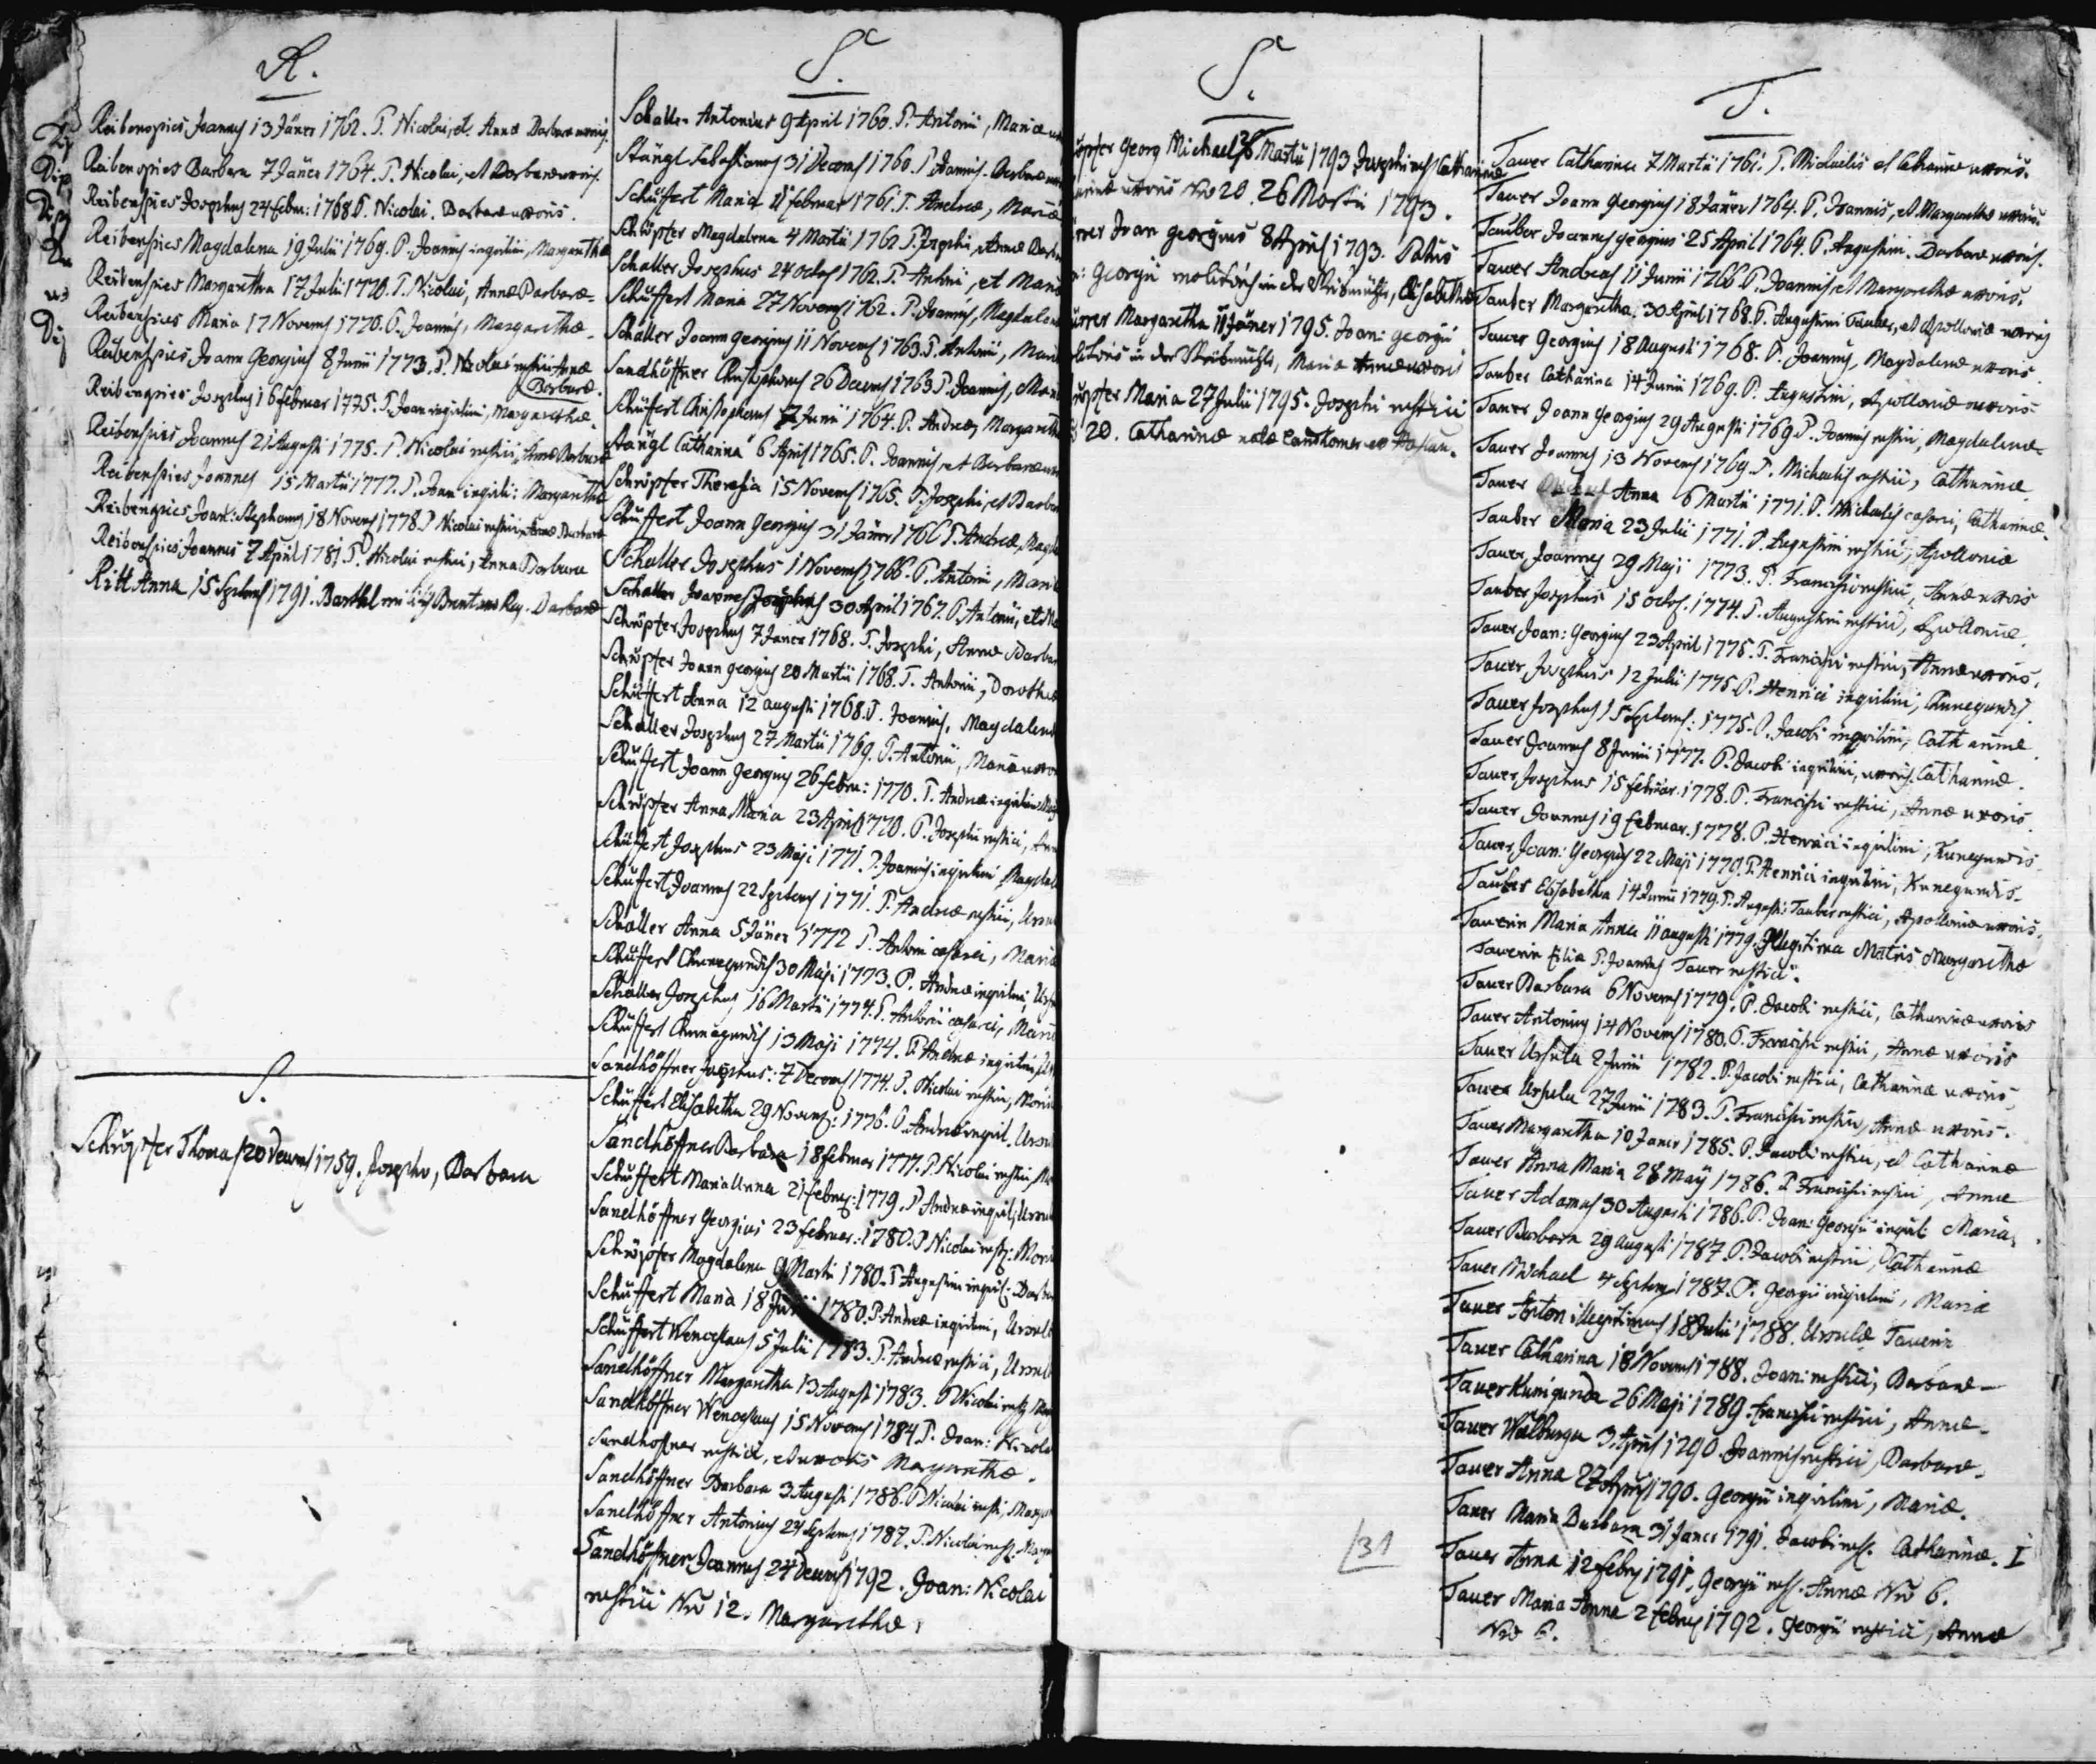 R.
Reibenspies Joannes 13 Jäner 1762. P. Nicolai, et Annæ Barbaræ uxoris.
Reibenspies Barbara 7 Jäner 1764. P. Nicolai, et Barbaræ uxoris.
Reibenspies Josephus 24 febru: 1768 P. Nicolai. Barbaræ uxoris.
Reibenspies Magdalena 19 Julii 1769. P. Joannis inquilini, Margarethæ
Reibenspies Margaretha 17 Julii 1770. P. Nicolai, Annæ Barbaræ.
Reibenspies Maria 17 Novem 1770. P. Joannis, Margarethæ.
Reibenspies Joann Georgius 8 Junii 1773. P. Nicolai rustici Annæ
Barbaræ.
Reibenspies Josephus 16 februar 1775. P. Joan inquilini, Margarethæ.
Reibenspies Joannes 21 Augusti 1775. P. Nicolai rustici, Annæ Barbaræ
Reibenspies Joannes 15 Martii 1777. P. Joan inquili: Margarethæ
Reibenspies Joan: Stephanus 18 Novem 1778. P Nicolai rustici, Annæ Barbaræ
Reibenspies Joannes 7 April 1781. P. Nicolai rustici, Anna Barbara
Ritt Anna 15 Septem 1791. Barthl Barbaræ
S.
Schröpfer Thomas 20 Decem 1759. Josepho, Barbara
S.
Schaller Antonius 9 April 1760. P. Antonii, Mariæ
Stängl Sebastianus 31 Decem 1760. P Joannis. Barbaræ
Schuffert Maria 11 februar 1761. P. Andreæ, Mariæ
Schröpfer Magdalena 4 Martii 1762. P. Josephi, Annæ
Schaller Josephus 24 Octob 1762. P. Antonii, et
Schuffert Maria 27 Novem 1762. P. Joannis,
Schaller Joann Georgius 11 Novem 1763. P. Antonii,
Sandhöffner Christophorus 26 Decem 1763 P. Joannis,
Schuffert Christophorus 7 Junii 1764. P. Andreæ,
Stängl Catharina 6 April 1765. P. Joannis, et Barbaræ
Schröpfer Theresia 15 Novem 1765. P. Josephi, et
Schuffert Joann Georgius 31 Jäner 1766 P. Andreæ,
Schaller Josephus 1 Novem 1766. P. Antonii,
Schaller Joannes Josephus 30 April 1767. P. Antonii,
Schröpfer Josephus 7 Janer 1768. P. Josephi, Annæ
Schröpfer Joann Georgius 20 Martii 1768. P. Antonii, Dorotheæ
Schuffert Anna 12 augusti 1768. P. Joannis, Magdalenæ
Schaller Josephus 27 Martii 1769. P. Antonii, Mariæ
Schuffert Joann Georgius 26 febru: 1770. P. Andreæ inquilini
Schröpfer Anna Maria 23 April 1770. P. Josephi rustici,
Schuffert Josephus 23 Maji 1771. P. Joannis inquilini
Schuffert Joannes 22 Septem 1771. P. Andreæ rustici,
Schaller Anna 5 Jäner 1772 P. Antonii casarii, Mariæ
Schuffert Chunegundis 30 Maji 1773. P. Andreæ inquilini,
Schaller Josephus 16 Martii 1774. P. Antonii casarii, Mariæ
Schuffert Chunegundis 13 Maji 1774. P. Andreæ inquilini
Sandhöffner Josephus: 7 Decem 1774. P. Nicolai rustici,
Schuffert Elisabetha 29 Novem: 1776. P. Andreæ inquil.
Sandhöffner Barbara 18 februar 1777. P. Nicolai rustici
Schuffert Maria Anna 21 februar: 1779. P Andreæ inquil:
Sandhöffner Georgius 23 februar: 1780. P Nicolai rust:
Schröpfer Magdalena 9 Martii 1780. P Augustini inquil:
Schuffert Maria 18 1780. P Andreæ inquilini,
Schuffert Wenceslaus 5 Julii 1783. P. Andreæ rustici,
Sandhöffner Margaretha 13 Augusti 1783. P Nicolai
Sandhöffner Wenceslaus 15 Novem 1784 P. Joan: Nicolai
Sandhöffner rustici, et uxoris Margarethæ.
Sandhöffner Barbara 3 Augusti 1786. P. Nicolai rusti,
Sandhöffner Antonius 24 Septem 1787. P. Nicolai rust.
Sandhöffner Joannes 24 Decem 1792. Joan: Nicolai
rustici Nro 12. Margarethæ.
S.
Georg Michael 26 Martii 1793 Josephi rust Catharinæ
uxoris Nro 20. 26 Martii 1793.
Joan Georgius 8 April 1793. Patris
Georgii molitoris in der Elisabethæ
Margaretha 11 Jäner 1795. Joan: Georgii
in der Maria Annæ uxoris
Maria 27 Julii 1795. Josephi rustici
20. Catharinæ natæ
T.
Tauer Catharina 7 Martii 1761. P. Michaelis et Catharinæ uxoris.
Tauer Joann Georgius 18 Jäner 1764. P. Joannis, et Margarethæ uxoris
Tauber Joannes Georgius 25 April 1764. P. Augustini. Barbaræ uxoris.
Tauer Andreas 11 Junii 1766 P. Joannis, et Margarethæ uxoris.
Tauber Margaretha. 30 April 1768. P. Augustini Tauber, et Apolloniæ uxoris
Tauer Georgius 18 Augusti 1768. P. Joannis, Magdalenæ uxoris
Tauber Catharina 14 Junii 1769. P. Augustini, Apolloniæ uxoris
Tauer Joann Georgius 29 Augusti 1769 P. Joannis rustici, Magdalenæ
Tauer Joannes 13 Novem 1769. P. Michaelis rustici, Catharinæ
Tauer Anna 6 Martii 1771. P. Michaelis casarii, Catharinæ.
Tauber Maria 23 Julii 1771. P. Augustini rustici, Apolloniæ
Tauer Joannes 29 Maji 1773. P. Francisci rustici, Annæ uxoris
Tauber Josephus 15 octob. 1774. P. Augustini rustici, Apolloniæ
Tauer Joan: Georgius 23 April 1775. P. Francisci rustici, Annæ uxoris.
Tauer Josephus 12 Julii 1775. P. Henrici inquilini, Chunegundis
Tauer Josephus 15 Septem: 1775. P. Jacobi inquilini, Catharinæ
Tauer Joannes 8 Junii 1777. P. Jacobi inquilini, uxoris Catharinæ.
Tauer Josephus 15 februar. 1778. P. Francisci rustici, Annæ uxoris.
Tauer Joannes 19 februar. 1778. P. Henrici inquilini, Kunegundis
Tauer Joan: Georgius 22 Maji 1779. P. Henrici inquilini, Kunegundis.
Tauber Elisabetha 14 Junii 1779. P. Augusti: Tauber rustici, Apolloniæ uxoris.
Tauerin Maria Anna 11 augusti 1779. Illegitima Matris Margarethæ
Tauerin filiæ P. Joannis Tauer rustici.
Tauer Barbara 6 Novem 1779. P. Jacobi rustici, Catharinæ uxoris
Tauer Antonius 14 Novem 1780. P. Francisci rustici, Annæ uxoris
Tauer Ursula 2 Junii 1782. P. Jacobi rustici, Catharinæ uxoris
Tauer Ursula 27 Junii 1783. P. Francisci rustici, Annæ uxoris.
Tauer Margaretha 10 Janer 1785. P. Jacobi rustici, et Catharinæ
Tauer Anna Maria 28 May 1786. P Francisci rustici, Annæ
Tauer Adamus 30 Augusti 1786. P. Joan: Georgii inquil: Mariæ
Tauer Barbara 29 augusti 1787. P. Jacobi rustici, Catharinæ
Tauer Michael 4 Septem 1787. P. Georgii inquilini, Mariæ
Tauer Anton illegitimus 18 Julii 1788. Ursulæ Tauerin
Tauer Catharina 18 Novem 1788. Joan: rustici, Barbaræ
Tauer Kunigunda 26 Maji 1789. francisci rustici, Annæ.
Tauer Walburga 3 April 1790. Joannis rustici, Barbaræ.
Tauer Anna 27 April 1790. Georgii inquilini, Mariæ.
Tauer Maria Barbara 31 Janer 1791. Jacobi rust. Catharinæ. I
Tauer Anna 12 febru 1791. Georgii rust. Annæ Nro 6.
Tauer Maria Anna 2 febru 1792. Georgii rustici, Annæ
Nro 6.
131